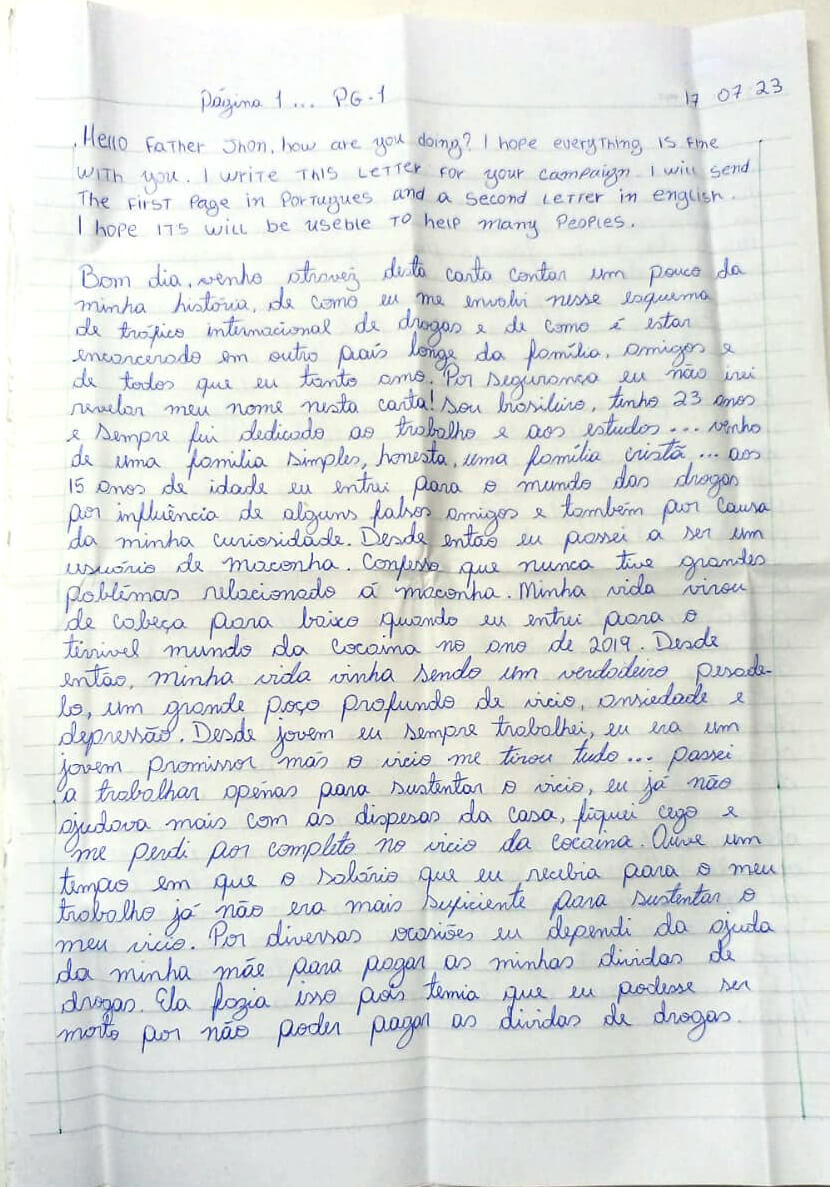 Página 1... PG-1
17 07 23
Hello Father Jhon, how are you doing? I hope everything is fine
with you. I write this letter for your campaign. I will send
The first page in Portugues and a second letter in english.
I hope its will be useble to help many Peoples.
Bom dia, venho atravez desta carta contar um pouco da
minha história, de como eu me envolvi nesse esquema
de tráfico internacional de drogas e de como é estar
encarcerado em outro país longe da família, amigos e
de todos que eu tanto amo. Por segurança eu não irei
revelar meu nome nesta carta! Sou brasileiro, tenho 23 anos
e sempre fui dedicado ao trabalho e aos estudos... venho
de uma familia simples, honesta, uma família cristã... aos
15 anos de idade eu entrei para o mundo das drogas
por influência de alguns falsos amigos e também por causa
da minha curiosidade. Desde então eu passei a ser um
usuário de maconha. Confesso que nunca tive grandes
poblémas relacionado á maconha. Minha vida virou
de cabeça para baixo quando eu entrei para o
tirrivel mundo da cocaina no ano de 2019. Desde
então, minha vida vinha sendo um verdadeiro pesade-
lo, um grande poço profundo de vicio, ansiedade e
depressão. Desde jovem eu sempre trabalhei, eu era um
jovem promissor mas o vicio me tirou tudo... passei
a trabalhar apenas para sustentar o vicio, eu já não
ajudava mais com as dispesas da casa, fiquei cego e
me perdi por completo no vicio da cocaina. Ouve um
tempo em que o salário que eu recebia para o meu
trabalho já não era mais suficiente para sustentar o
meu vicio. Por diversas ocasiões eu dependi da ajuda
da minha mãe para pagar as minhas dividas de
drogas. Ela fazia isso pois temia que eu podesse ser
morto por não poder pagar as dividas de drogas.